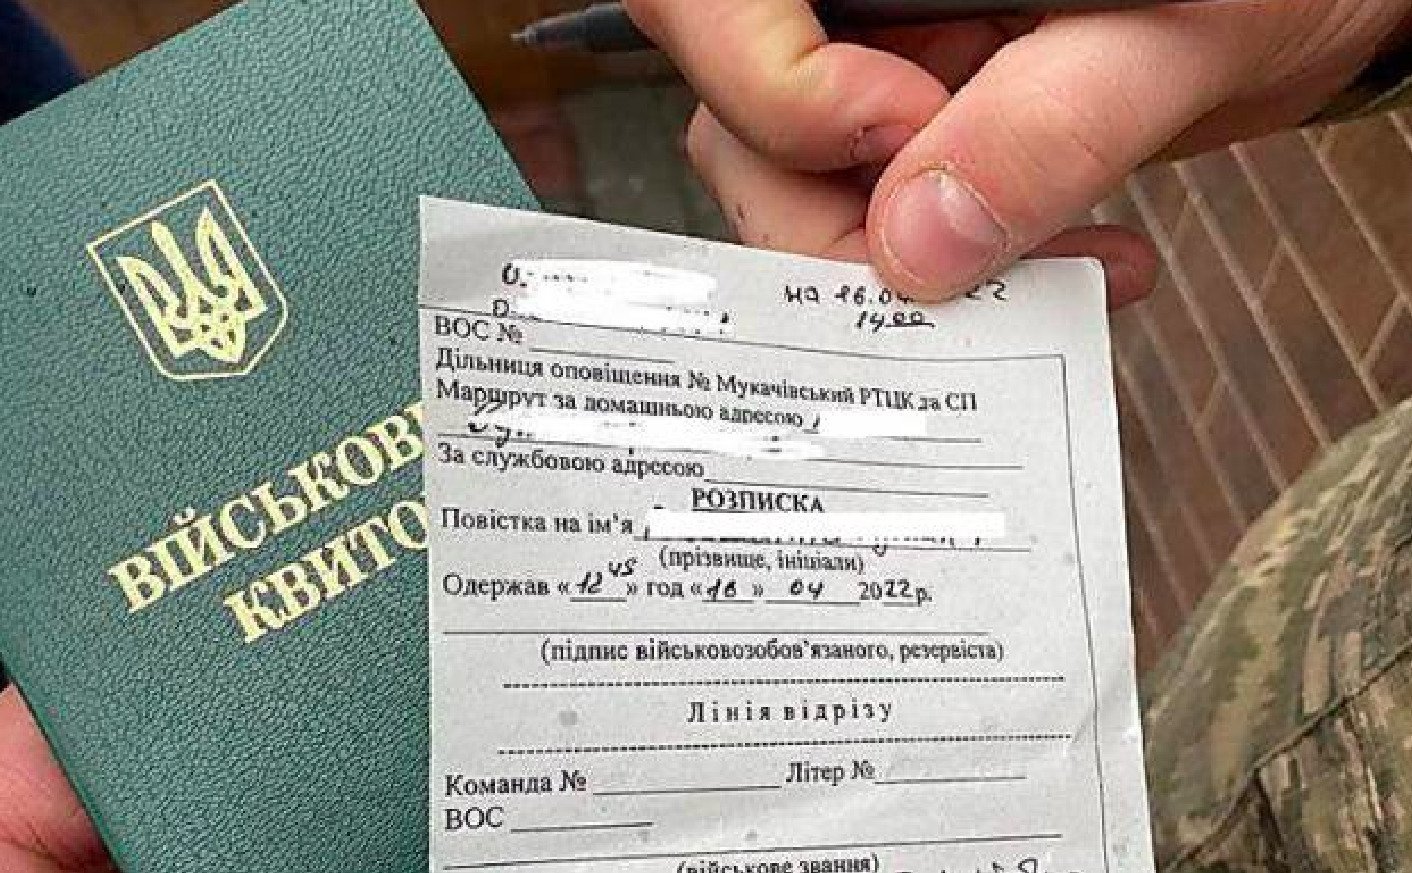 ВІЙСЬКОВ
КВИТО
на 16.04 22
14 00
ВОС №
Дільниця оповіщення № Мукачівський РТЦК та СП
Маршрут за домашньою адресою
За службовою адресою
РОЗПИСКА
Повістка на ім'я
(прізвище, ініціали)
Одержав «12 45» год «16» 04 2022 р.
(підпис військовозобов'язаного, резервіста)
Лінія відрізу
Команда № Літер №
ВОС
(військове звання)